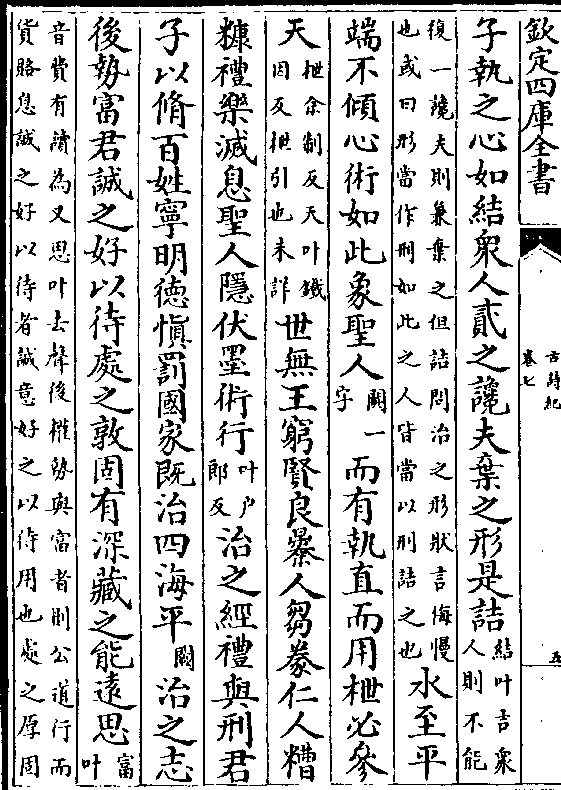 欽定四庫全書
古詩紀
卷七
五
子執之心如結衆人貳之讒夫棄之形是詰結叶吉衆人則不能
復一讒夫則兼棄之但詰問治之形狀言侮慢也或曰形當作刑如此之人皆當以刑詰之也水至平
端不傾心術如此象聖人闕一字而有執直而用枻必參
天枻余制反天叶鐵因反枻引也未詳世無王窮賢良暴人芻豢仁人糟
糠禮樂滅息聖人隱伏墨術行叶户郎反治之經禮與刑君
子以脩百姓寧明德慎罰國家既治四海平闕治之志
後埶富君誠之好以待處之敦固有深藏之能遠思富叶
音費有讀為又思叶去聲後權勢與富者則公道行而貨賂息誠之好以待者誠意好之以待用也處之厚固